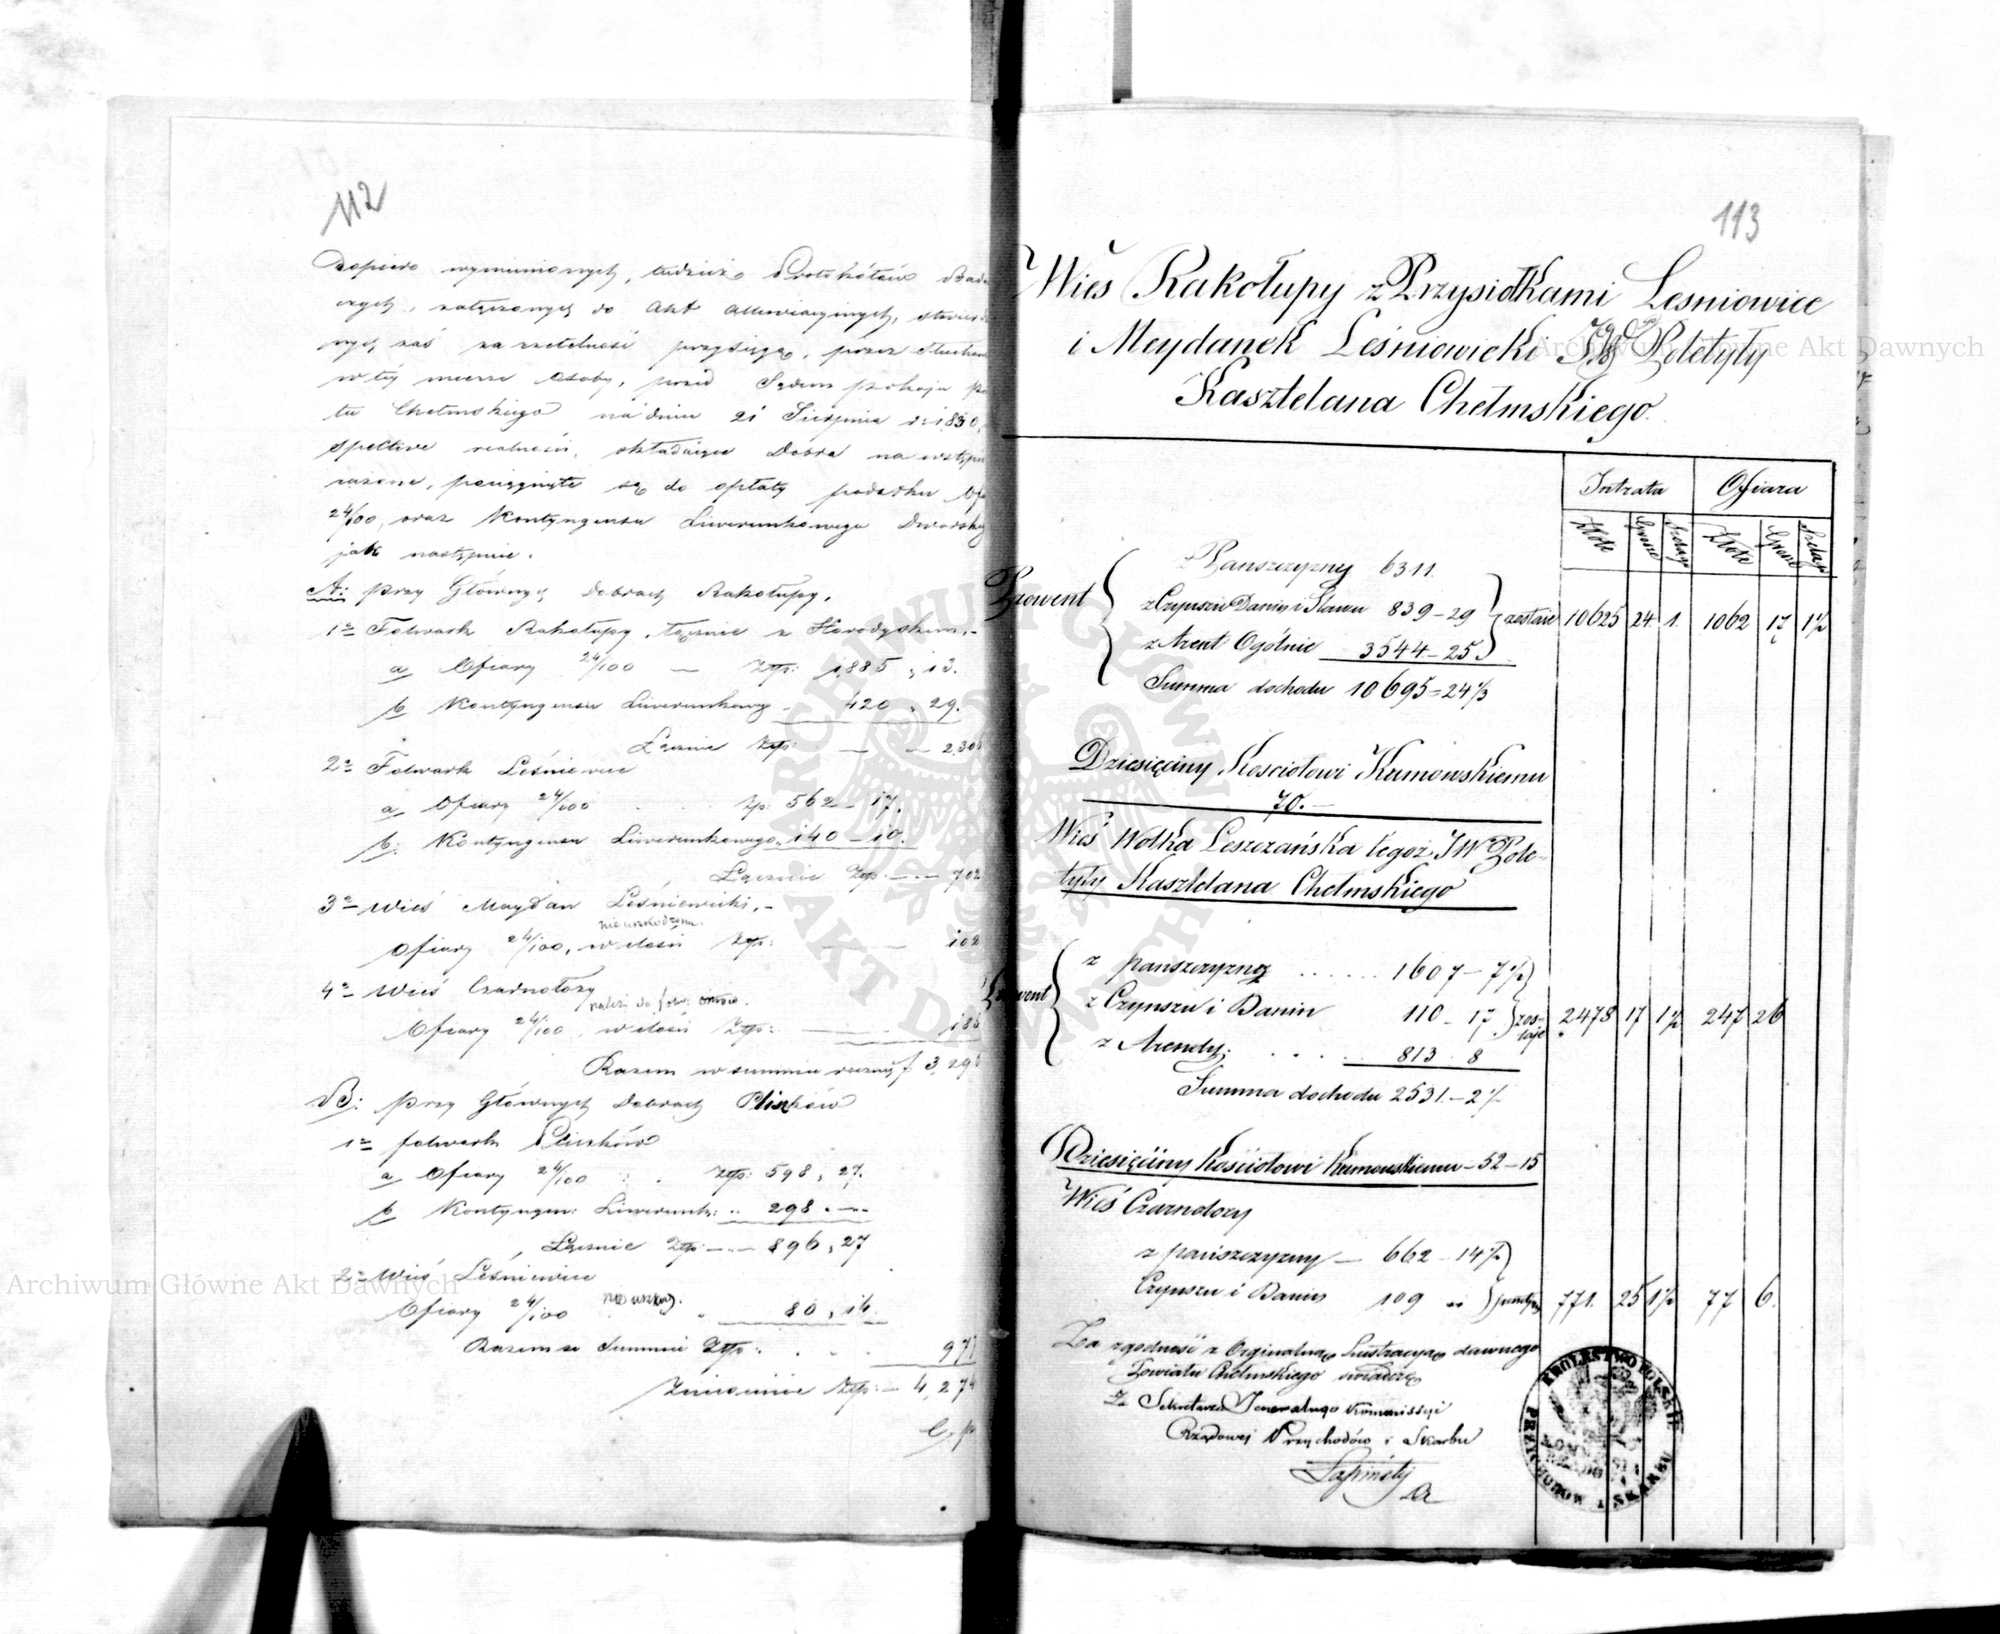 112
Dopiero wymienionych, tudzież Protokółów Bada
czych, załączonych do Akt Alleviacyjnych, stwierdzo
nych zaś za rzetelność przysięgą, przez słuchan
w tej mierze Osoby, przed Sądem pokoju po
tu Chełmskiego na dniu 21 Sierpnia r: 1830,
spective realności, składające Dobra na wstępie
rażone, pociągnięte są do opłaty podatku Ofi
24/100, oraz Kontyngensu Liwerunkowego Dworskieg
jak następnie.
A: przy Głównych Dobrach Rakołupy.
1o Folwark Rakołupy, łącznie z Horodyskiem,-
a Ofiary 24/100 — Złp: 1,885 „ 13.
b Kontyngensu Liwerunkowego - 420 „ 29.
Łącznie Złp: — — 2,306
2o Folwark Leśniewice
a Ofiary 24/100 . . Zp: 562 - 17.
b: Kontyngensu Liwerunkowego „ 140 - 10.
Łącznie Złp: — — 702
3o Wieś Maydan Leśniewicki,-
nieuszkodzona.
Ofiary 24/100, w ilości Złp: — — 102
4o Wieś Czarnołozy
należi do folw:
Ofiary 24/100 w ilości Złp: — 185
Razem w summie roczney f. 3,296
B: przy Głównych Dobrach Pliszków
1o folwark Pliszków
a Ofiary 24/100 : . Złp: 598 „ 27.
b Kontyngen: Liwerunk: .. 298 . —
Łącznie Złp: — — 896 „ 27
2o Wieś Leśniewice
nieuszkodz.
Ofiary 24/100 „ 80 „ 14.
Razem w Summie Złp: . . . 977
Złp: — 4,274
113
Wieś Rakołupy z Przysiołkami Lesniowice
i Meydanek Leśniowicki JW Poletyły
Kasztelana Chełmskiego.
Intrata Ofiara
Złote Grosze Szelągi Złote Grosze Szelągi
Prowent
z Panszczyzny 6311.
z Czynszu Danin i Stawu 839 - 29
zostaie 10625 24. 1. 1062 17 1½
z Arend Ogólnie 3544 - 25
Summa dochodu 10695 = 24⅓
Dziesięciny Kościołowi Kumowskiemu
70. —
Wieś Wolka Leszczańska tegoż JW Pole-
tyły Kasztelana Chełmskiego
Prowent
z panszczyzny . . . . . . 1607 - 7½
z Czynszu i Danin 110 - 17
zos-
taje 2478 17 1½ 247 26
z Arendy: . . . . 813 - 8
Summa dochodu 2531. - 2½
Dziesięciny Kościołowi Kumowskiemu - 52 - 15
Wieś Czarnołozy
z pańszczyzny — 662 - 14½
Czynszu i Danin 109 - 11 771. 25 1½ 77 6.
Za zgodność z Orginalną Lustracyą dawnego
Powiatu Chełmskiego świadczę
Za Sekretarza Jeneralnego Kommissyi
Rządowej Przychodów i Skarbu
KRÓLESTWO POLSKIE
KOMMISSYA RZĄDOWA
PRZYCHODÓW I SKARBU
Archiwum Główne Akt Dawnych
Archiwum Główne Akt Dawnych
ARCHIWUM GŁÓWNE AKT DAWNYCH